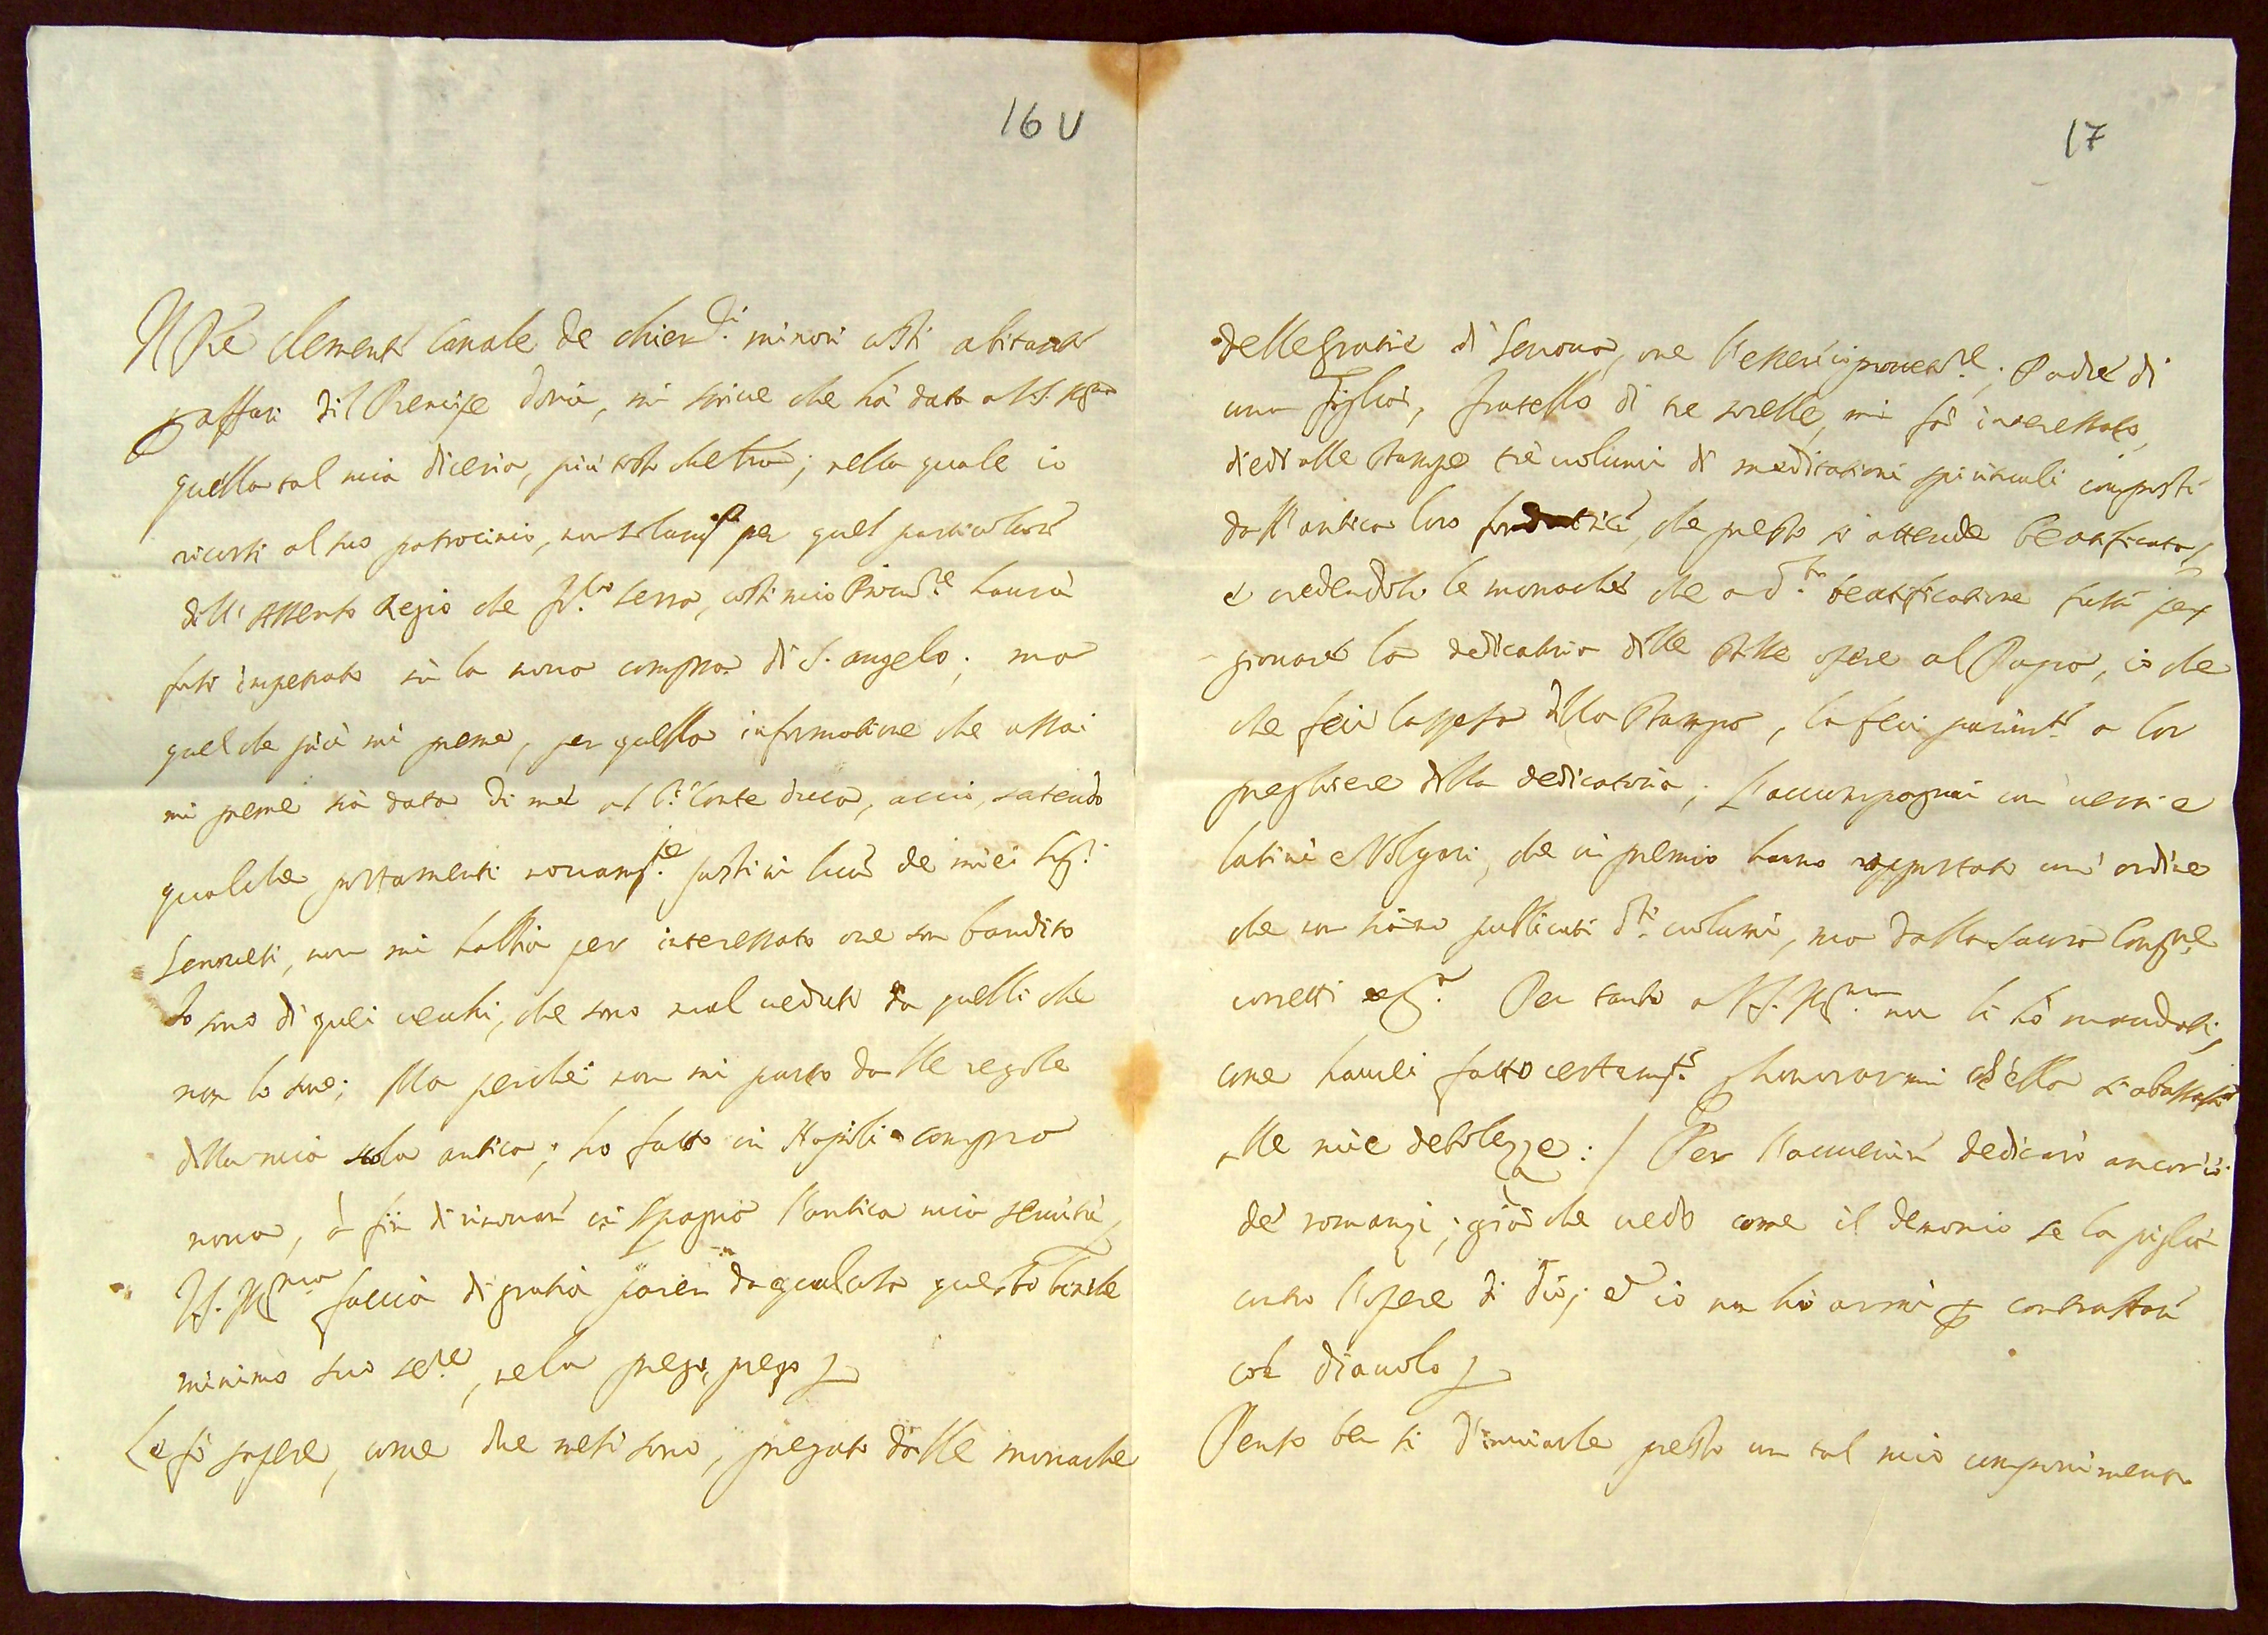 16 v
Il Pre Clemente Canale de chier.ci minori costì abitante
p affari del Prencipe Doria, mi scrive che hà dato a V.S. Ill.ma
quella tal mia diceria, più tosto che lra; nella quale io
ricorsi al suo patrocinio, non solam.te per quel particolare
dell'Assenso Regio che Serra, costì mio Procur.re haurà
fatto impetrato sù la nova compra di S. Angelo; ma
quel che più mi preme, per quella informatione che assai
mi preme sia data di me al S.r Conte Duca, acciò, sapendo
qualche portamenti novam.te fatti in luce de miei Sig.ri
Genovesi, non mi habbia per interessato ove son bandito
Io sono di quei vecchi, che sono mal veduti da quelli che
non lo sono; Ma perché non mi parto dalle regole
della mia scola antica; ho fatto in Napoli compra
nova, à fin di rinovare in Spagna l'antica mia servitù,
V.S. Ill.ma faccia di gratia questo
minimo suo se.re, ne la prego, prego
Le fò sapere, come due mesi sono, pregato dalle monache
17
delle Gratie di Genova, ove l'esser io ; Padre di
una figlia, fratello di tre sorelle, mi fà interessato,
diedi alle stampe trè volumi di meditationi spirituali composti
dall'antica loro fondatrice, che presto si attende beatificata,
e credendosi le monache che a d.ta beatificatione fusse per
giovare la dedicatoria delle dette opere al Papa, io che
che feci la spesa della stampa, la feci parim.te a lor
preghiere della dedicatoria; l'accompagnai con versi e
latini e volgari, che in premio hanno rapportato un' ordine
che non siano publicati d.ti volumi, ma dalla Sacra Cong.ne
corretti Per tanto a V.S. Ill.ma non li hò mandati,
come haurei fatto certam.te p honorarmi ch'ella si abassasse
alle mie debolezze:/ Per l'avvenire dedicarò ancor'io
de romanzi; già che vedo come il demonio se la piglia
contro l'opere di Dio; et io non hò armi p contrastare
col diavolo
Penso ben sì d'inviarle presto un tal mio componimento